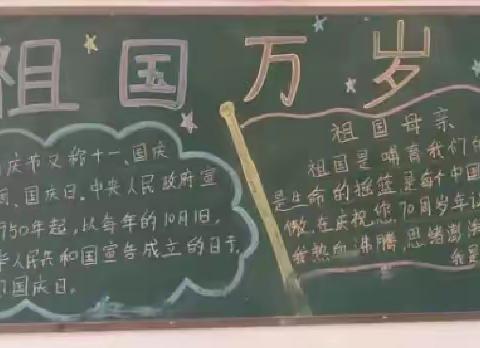 祖国万岁
庆节又称十一、国庆
国庆日。中央人民政府宣
950年起，以每年的10月1日，
华人民共和国宣告成立的日子，
国庆日。
祖国母亲
祖国是哺育我们的
是生命的摇篮是每个中国
傲，在庆祝您70周岁年
我热血沸腾，思绪澎湃
我是